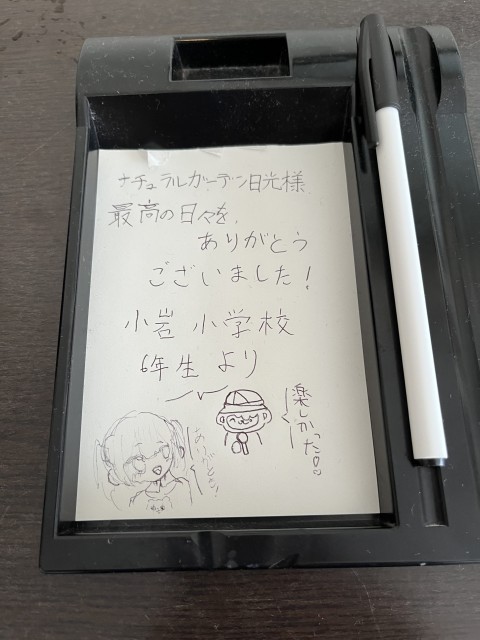 ナチュラルガーデン日光様
最高の日々を、
ありがとう
ございました!
小岩小学校
6年生より
楽しかった
ありがとう!